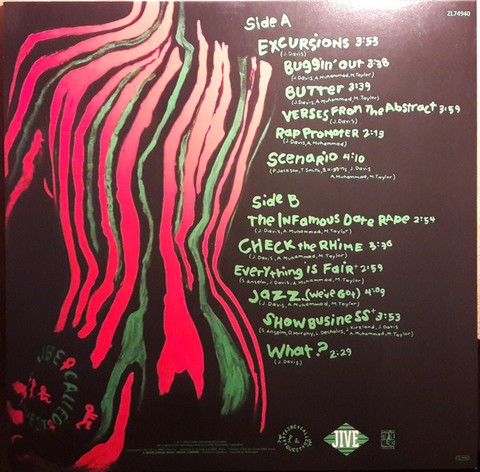 ZL74940
Side A
EXCURSIONS 3:53
(J.Davis)
Buggin' out 3:38
(J.Davis, A.Muhammad, M.Taylor)
BUTTER 3:39
(J.Davis, A.Muhammad, M.Taylor)
VERSES FROM The Abstract 3:59
(J.Davis)
Rap Promoter 2:13
(J.Davis, A.Muhammad)
Scenario 4:10
(P.Jackson, T.Smith, J.Davis
A.Muhammad, M.Taylor)
Side B
The InFamous Date Rape 2:54
(J.Davis, A.Muhammad, M.Taylor)
CHECK the RHIME 3:36
(J.Davis, A.Muhammad, M.Taylor)
Everything is Fair 2:59
(S.Anselm, J.Davis, A.Muhammad, M.Taylor)
JAZZ (We've Got) 4:09
(J.Davis, A.Muhammad, M.Taylor)
SHOW BUSINESS 3:53
(S.Anselm, D.Murphy, L.Dechalus, J.Kirkland, J.Davis
A.Muhammad, M.Taylor)
What? 2:29
(J.Davis)
JIVE